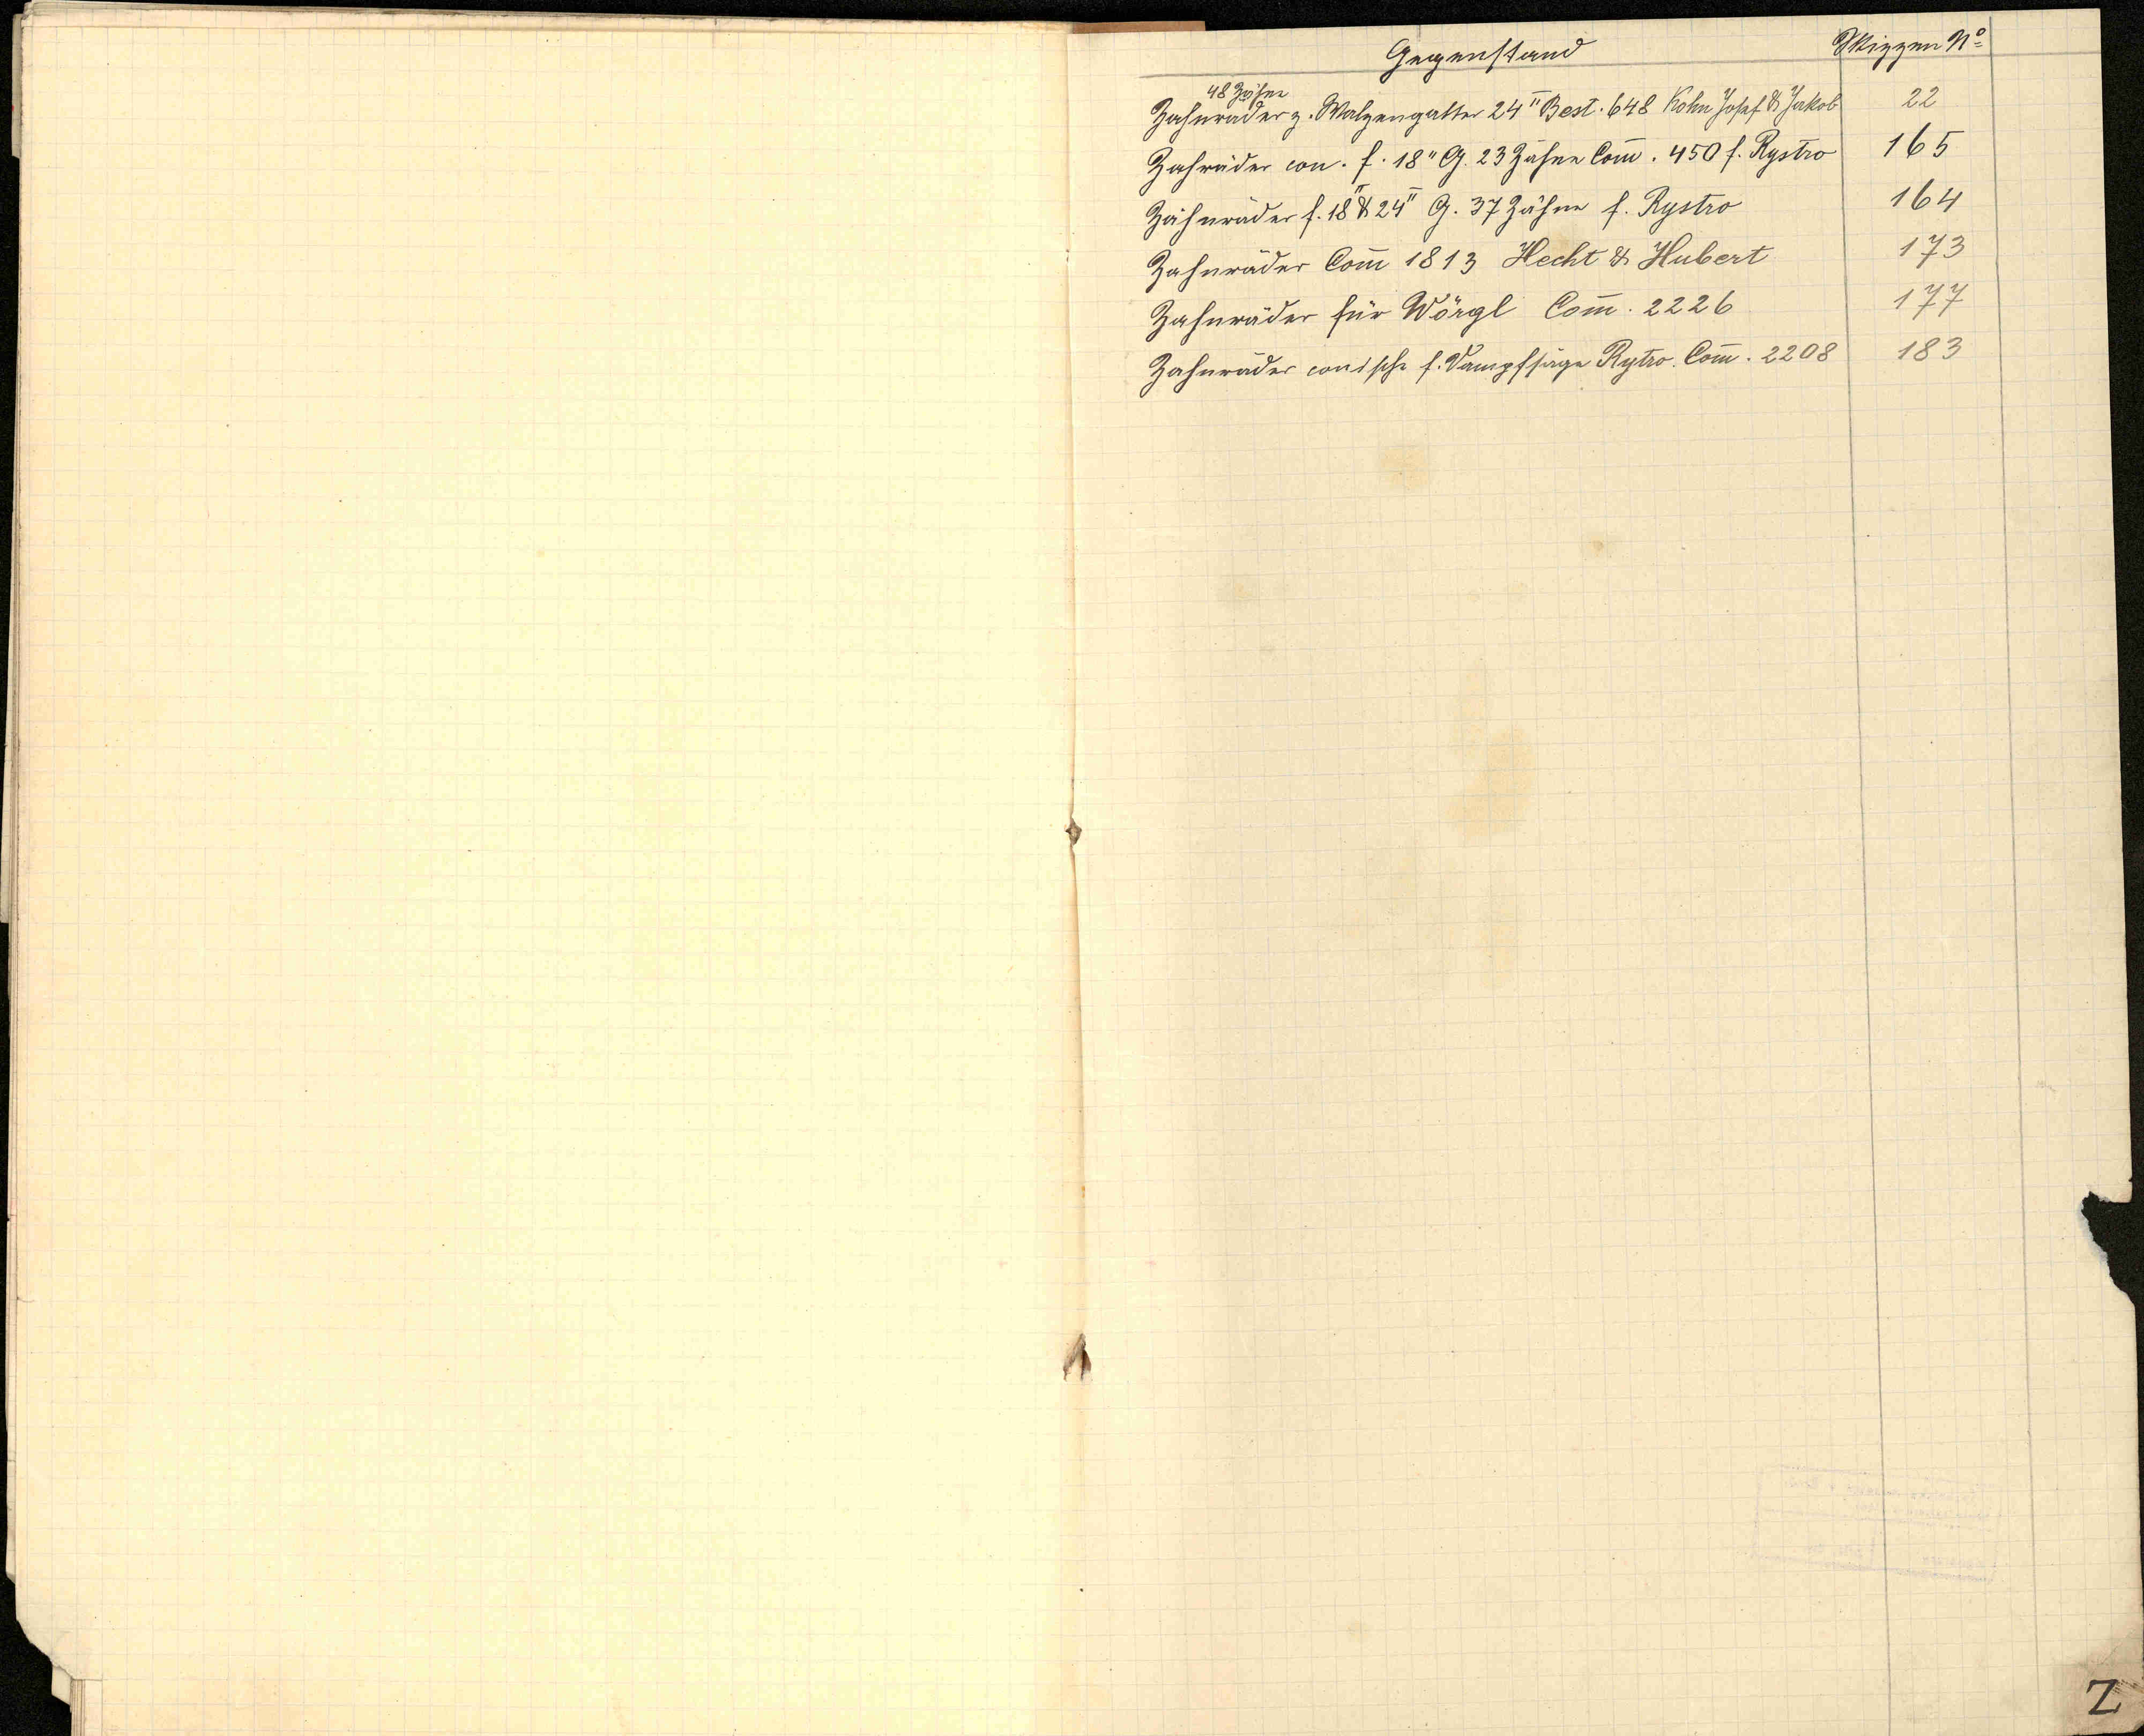 Gegenstand Skizzen Nº
48 Zähne
Zahnräder z. Walzengatter 24" Best. 648 Kohn Josef & Jakob 22
Zahräder con. f. 18" G. 23 Zähne Com̄. 450 f. Rystro 165
Zahnräder f. 18" & 24" G. 37 Zähne f. Rystro 164
Zahnräder Com̄ 1813 Hecht & Hubert 173
Zahnräder für Wörgl Com̄. 2226 177
Zahnräder conische f. Dampfsäge Rytro. Com̄. 2208 183
Z